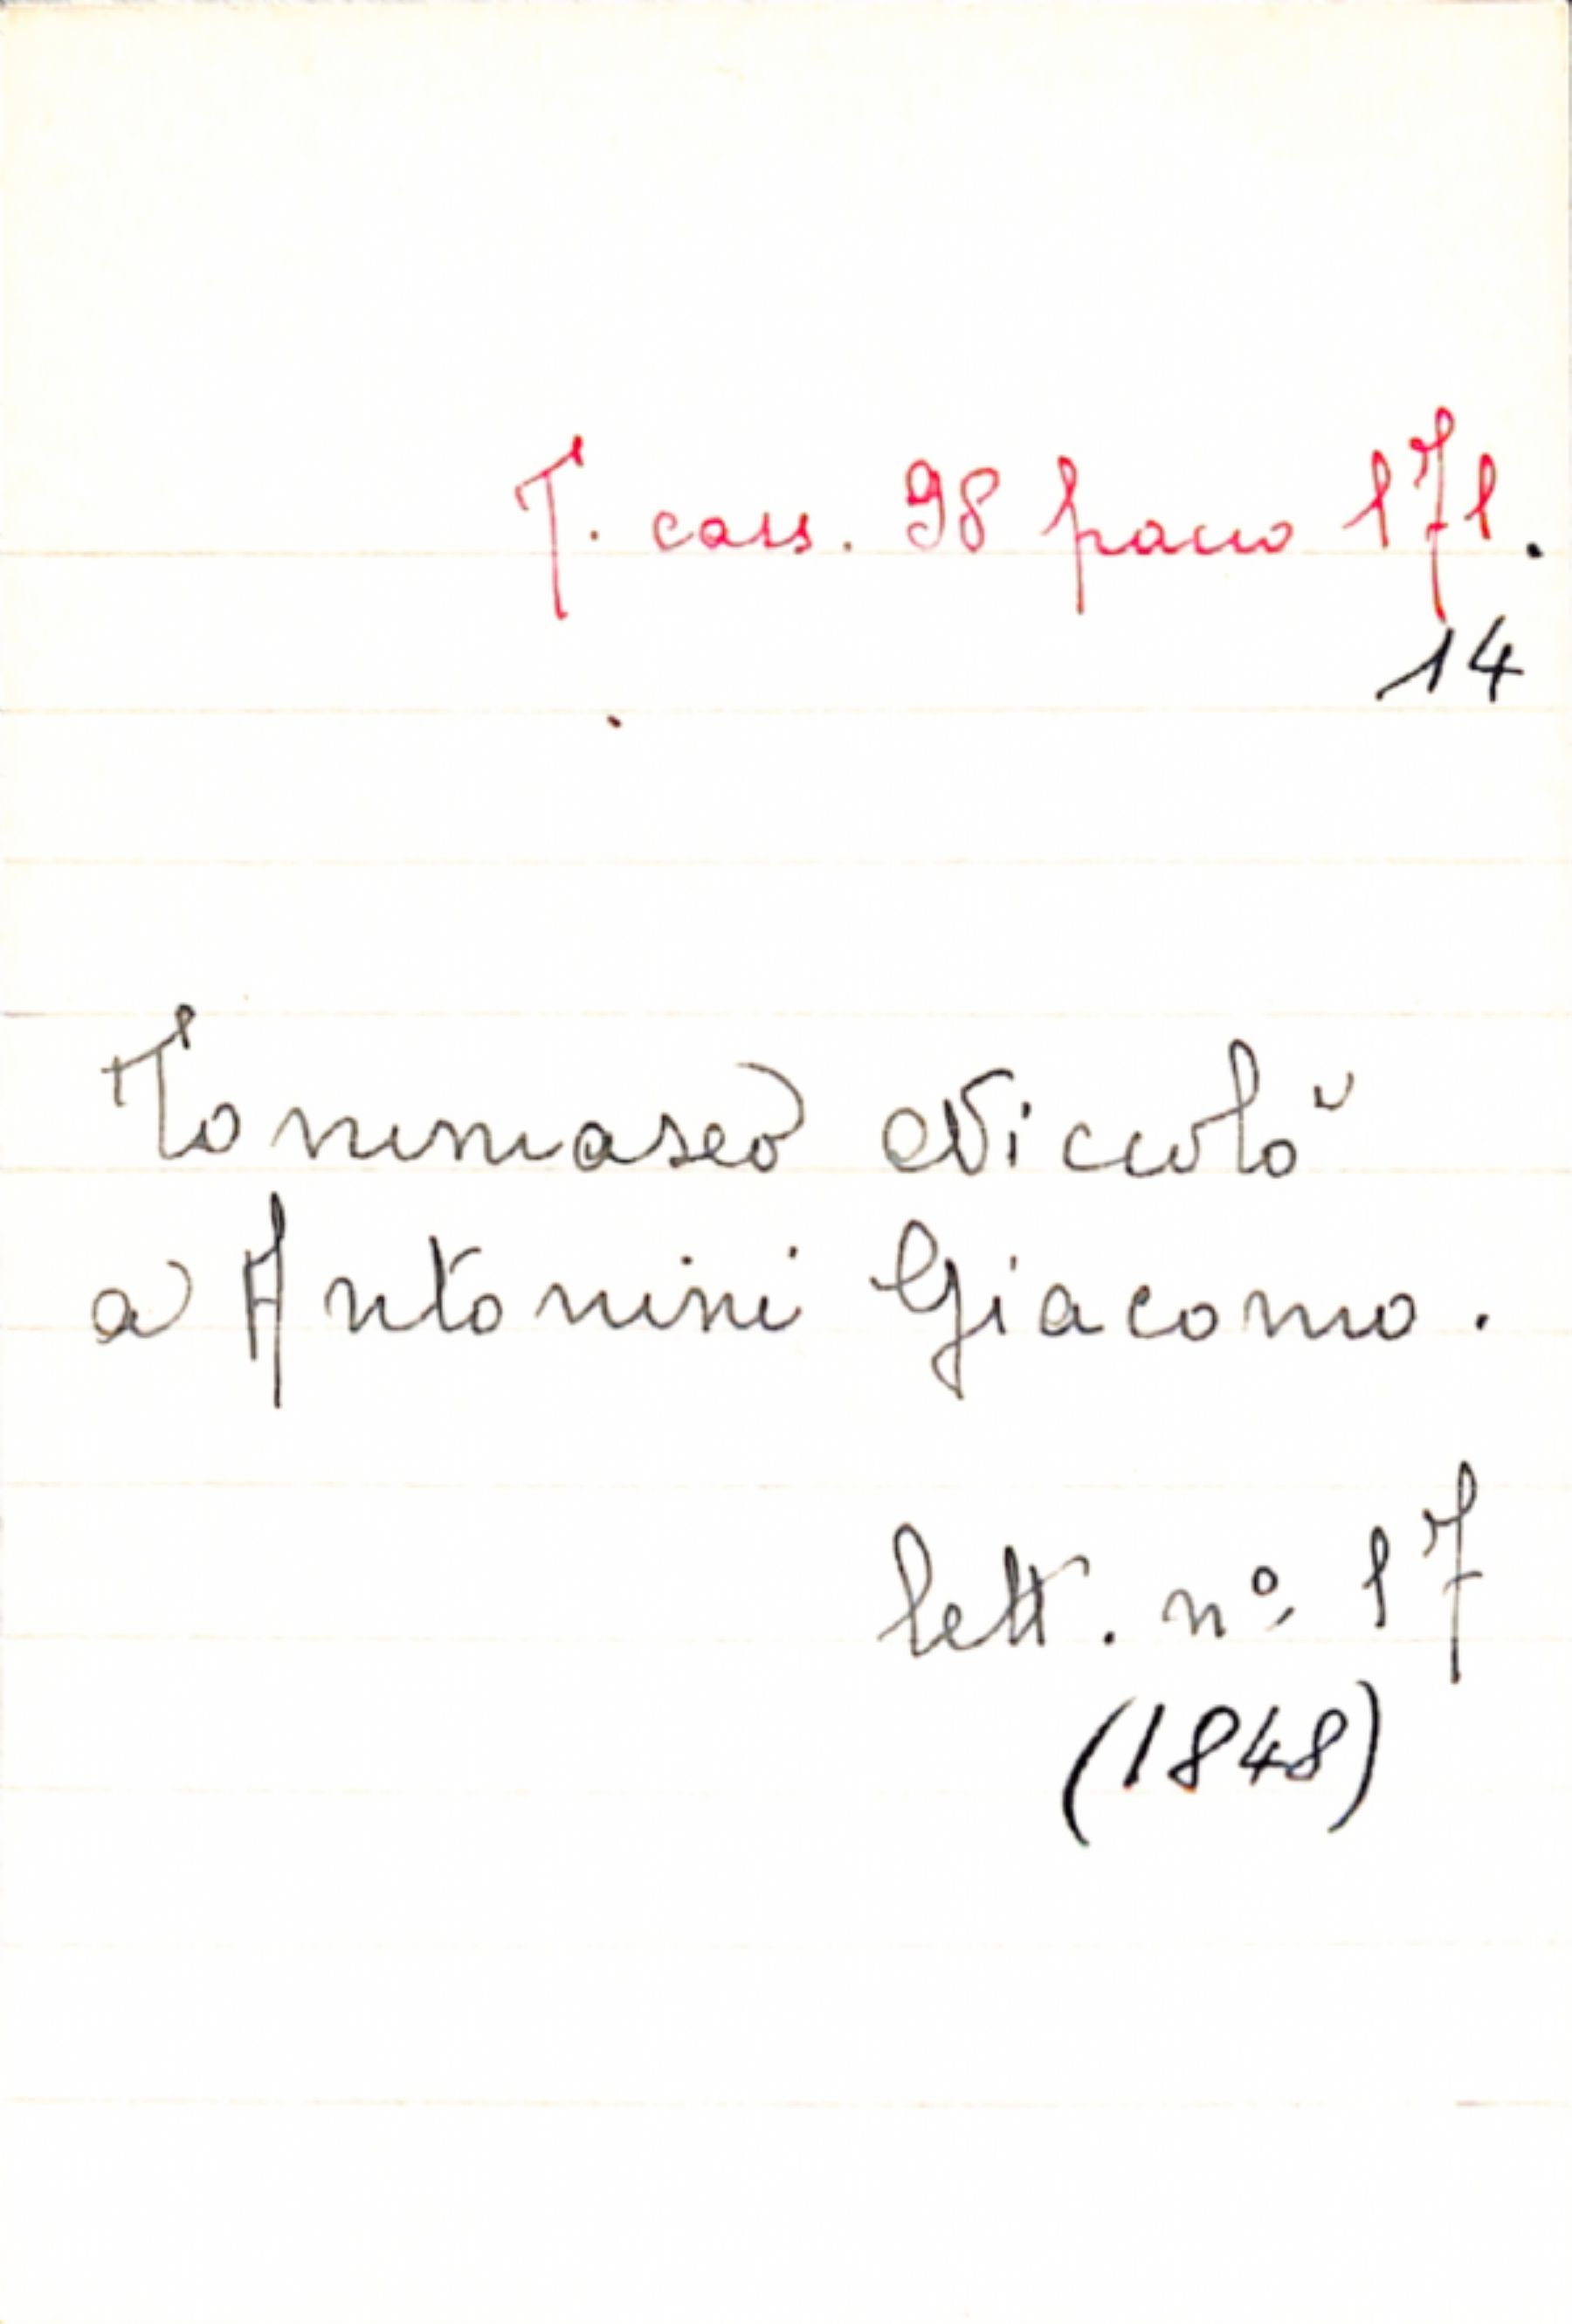 T. cass. 98 pacco 171.
14
Tommaseo Niccolò
a Antonini Giacomo.
lett. nº 17
(1848)